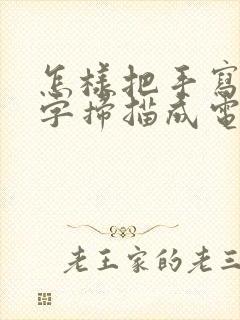 怎樣把手寫
字掃描成電
老王家的老三